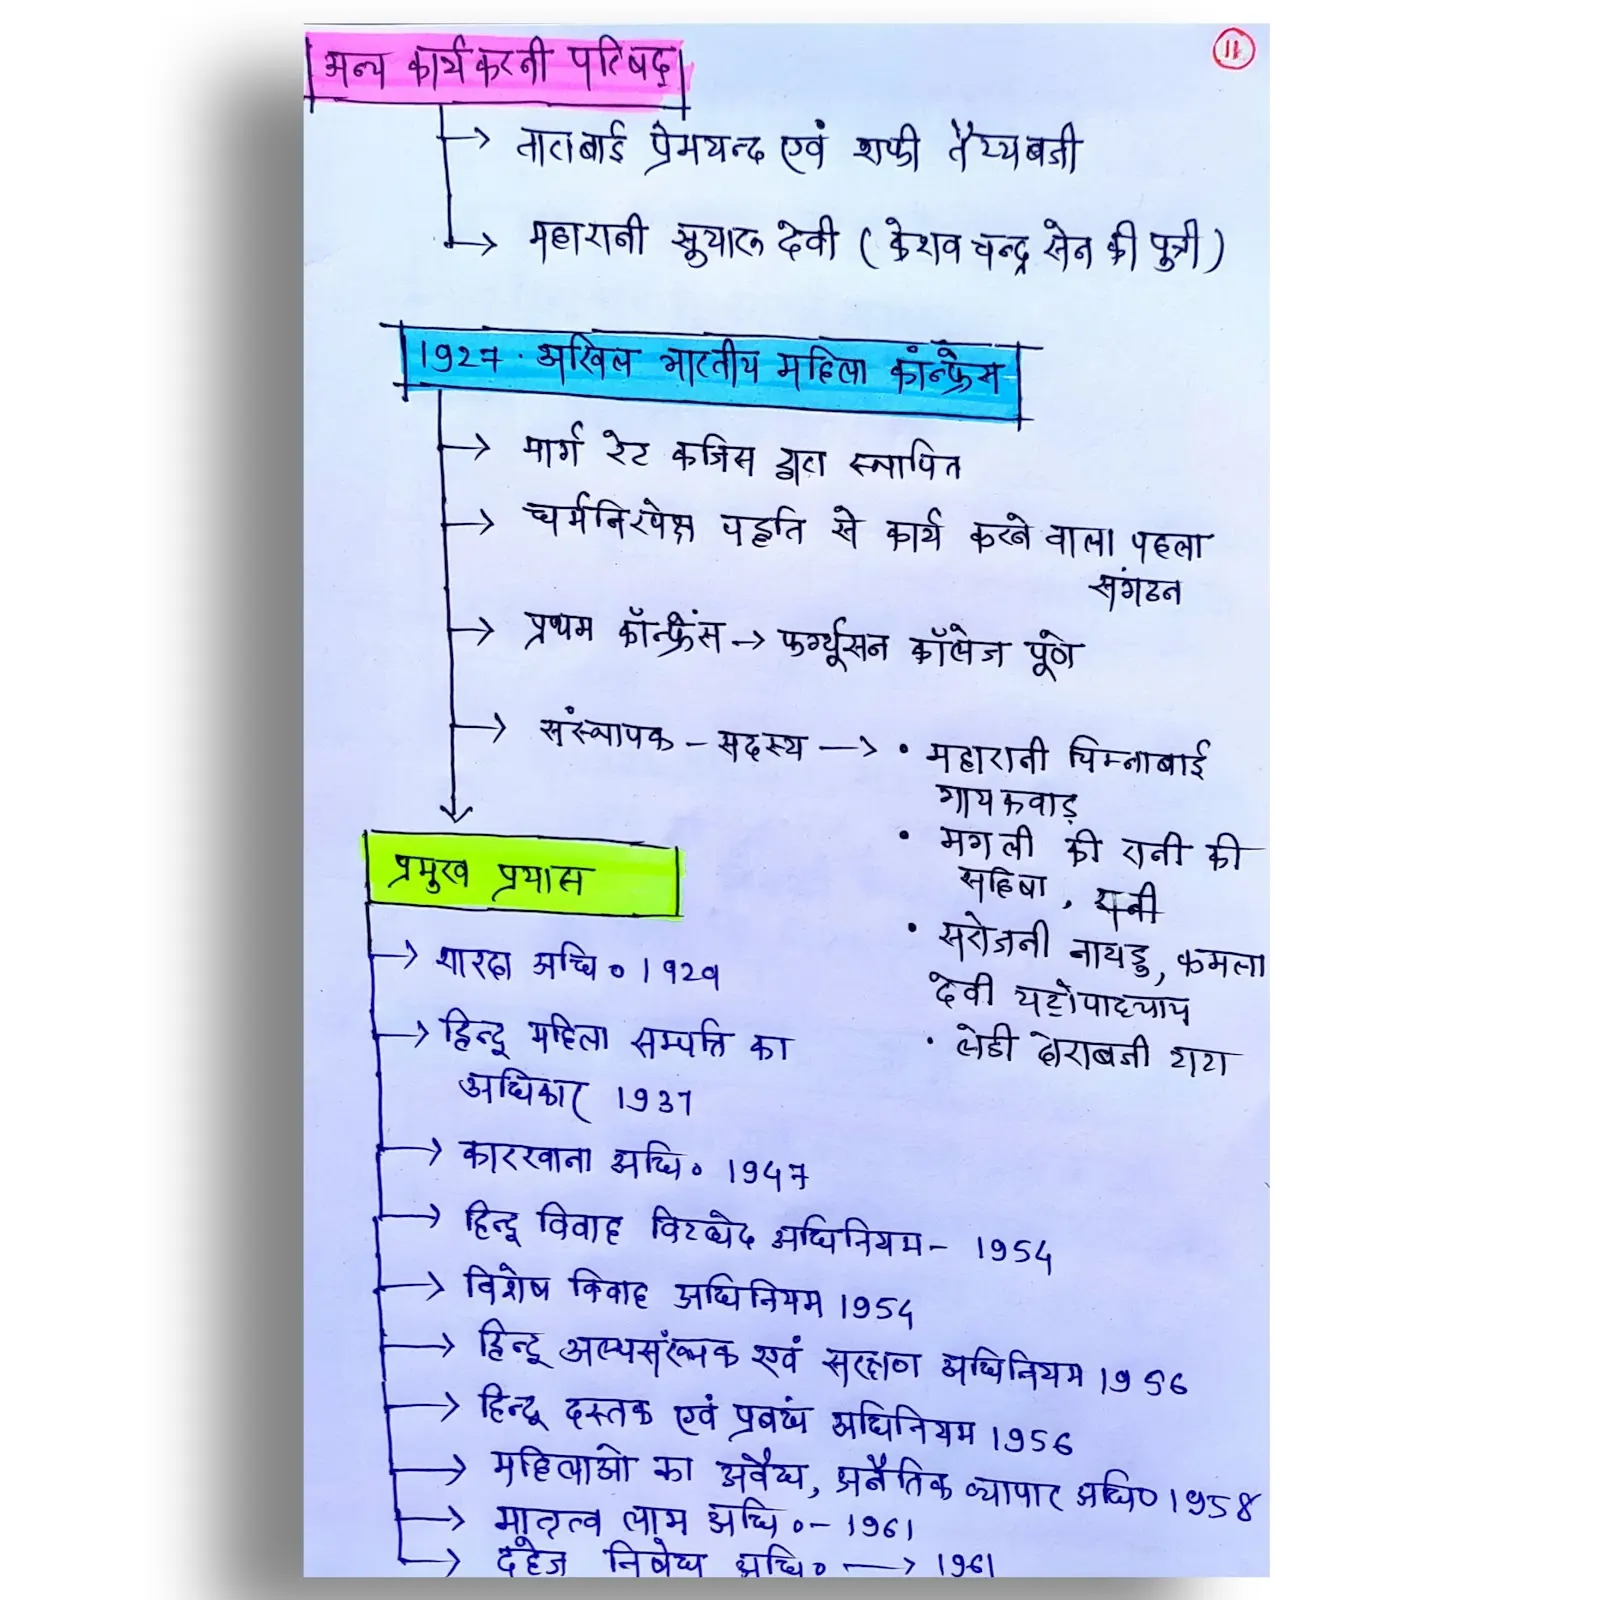 11
अन्य कार्यकरनी परिषद
→ ताराबाई प्रेमचन्द एवं शफी तैय्यबजी
→ महारानी सूचारू देवी (केशव चन्द्र सेन की पुत्री)
1927 · अखिल भारतीय महिला कॉन्फ्रेंस
→ मार्ग रेट कजिस द्वारा स्थापित
→ धर्मनिरपेक्ष पद्धति से कार्य करने वाला पहला
संगठन
→ प्रथम कॉन्फ्रेंस → फर्ग्यूसन कॉलेज पूणे
→ संस्थापक - सदस्य → • महारानी चिम्नाबाई
गायकवाड़
• मंगली की रानी की
सहिबा, रानी
• सरोजनी नायडु, कमला
देवी चट्टोपाध्याय
• लेडी दोराबजी टाटा
प्रमुख प्रयास
→ शारदा अधि० 1929
→ हिन्दू महिला सम्पत्ति का
अधिकार 1937
→ कारखाना अधि० 1947
→ हिन्दू विवाह विच्छेद अधिनियम - 1954
→ विशेष विवाह अधिनियम 1954
→ हिन्दू अल्पसंख्यक एवं संरक्षण अधिनियम 1956
→ हिन्दू दस्तक एवं प्रबंध अधिनियम 1956
→ महिलाओ का अवैध, अनैतिक व्यापार अधि० 1958
→ मातृत्व लाभ अधि० - 1961
→ दहेज निषेध अधि० → 1961